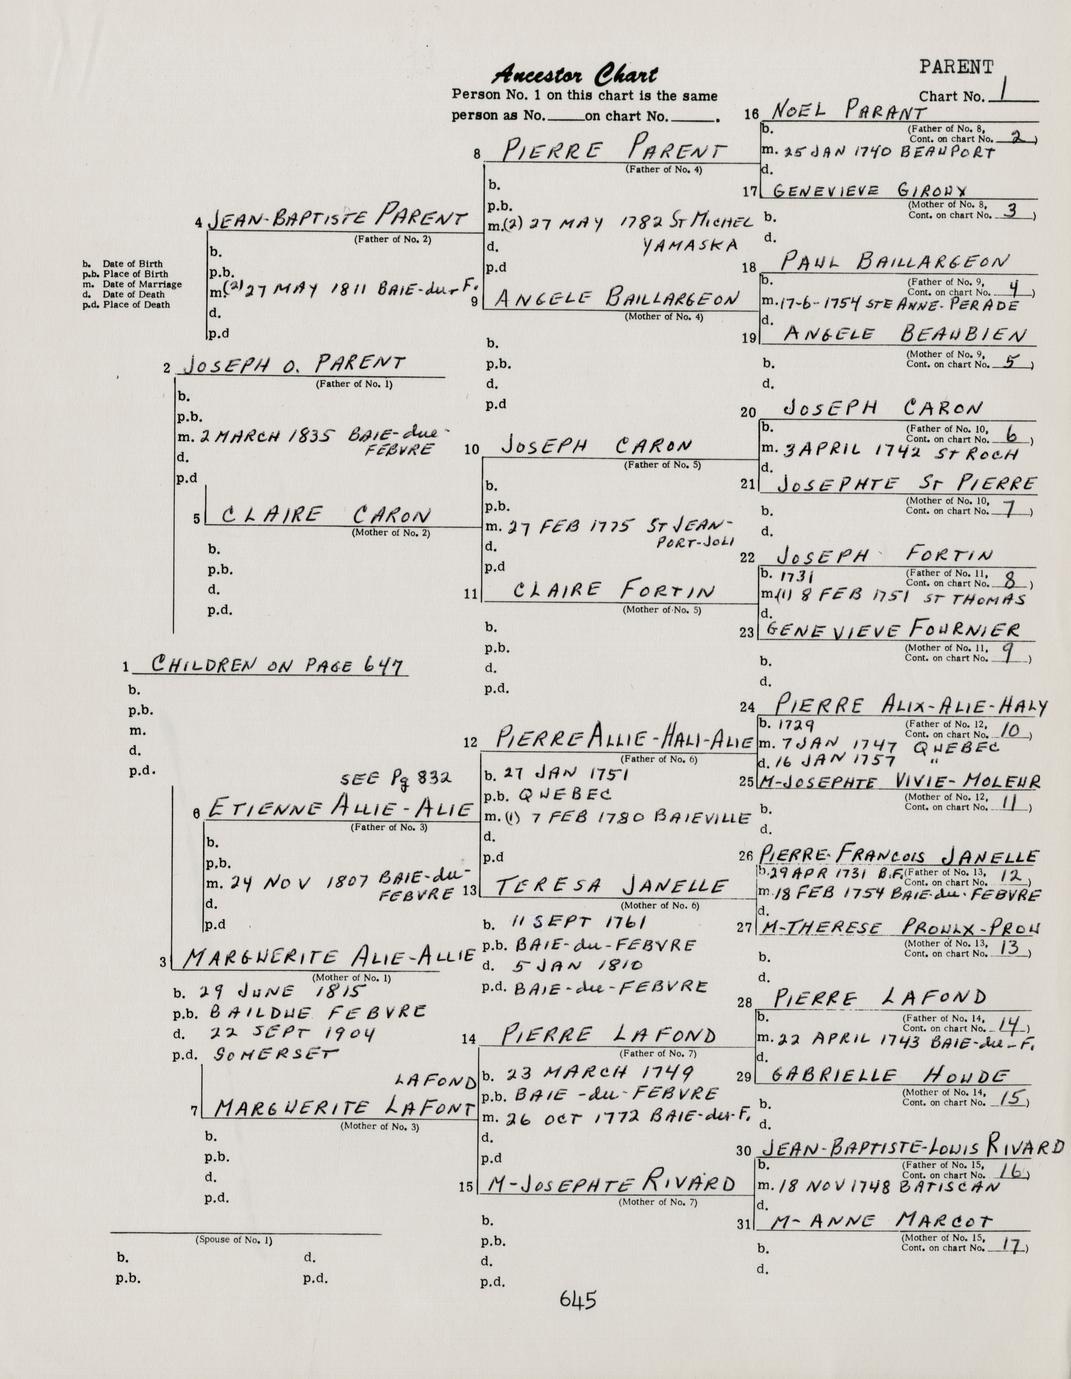 Ancestor Chart
PARENT
Person No. 1 on this chart is the same
person as No. on chart No. .
Chart No. 1
b. Date of Birth
p.b. Place of Birth
m. Date of Marriage
d. Date of Death
p.d. Place of Death
1 CHILDREN ON PAGE 647
b.
p.b.
m.
d.
p.d.
2 JOSEPH O. PARENT
(Father of No. 1)
b.
p.b.
m. 2 MARCH 1835 BAIE-du-
FEBVRE
d.
p.d
3 MARGUERITE ALIE-ALLIE
(Mother of No. 1)
b. 29 JUNE 1815
p.b. BAILDUE FEBVRE
d. 22 SEPT 1904
p.d. SOMERSET
4 JEAN-BAPTISTE PARENT
(Father of No. 2)
b.
p.b.
m(2) 27 MAY 1811 BAIE-du-F.
d.
p.d
5 CLAIRE CARON
(Mother of No. 2)
b.
p.b.
d.
p.d.
SEE Pg 832
6 ETIENNE ALLIE-ALIE
(Father of No. 3)
b.
p.b.
m. 24 NOV 1807 BAIE-du-
FEBVRE
d.
p.d
LAFOND
7 MARGUERITE LAFONT
(Mother of No. 3)
b.
p.b.
d.
p.d.
8 PIERRE PARENT
(Father of No. 4)
b.
p.b.
m.(2) 27 MAY 1782 ST MICHEL
d. YAMASKA
p.d
9 ANGELE BAILLARGEON
(Mother of No. 4)
b.
p.b.
d.
p.d
10 JOSEPH CARON
(Father of No. 5)
b.
p.b.
m. 27 FEB 1775 ST JEAN-
d. PORT-JOLI
p.d
11 CLAIRE FORTIN
(Mother of No. 5)
b.
p.b.
d.
p.d.
12 PIERRE ALLIE-HALI-ALIE
(Father of No. 6)
b. 27 JAN 1751
p.b. QUEBEC
m. (1) 7 FEB 1780 BAIEVILLE
d.
p.d
13 TERESA JANELLE
(Mother of No. 6)
b. 11 SEPT 1761
p.b. BAIE-du-FEBVRE
d. 5 JAN 1810
p.d. BAIE-du-FEBVRE
14 PIERRE LAFOND
(Father of No. 7)
b. 23 MARCH 1749
p.b. BAIE-du-FEBVRE
m. 26 OCT 1772 BAIE-du-F.
d.
p.d
15 M-JOSEPHTE RIVARD
(Mother of No. 7)
b.
p.b.
d.
p.d.
16 NOEL PARANT
b. (Father of No. 8,
Cont. on chart No. 2)
m. 25 JAN 1740 BEAUPORT
d.
17 GENEVIEVE GIROUX
(Mother of No. 8,
b. Cont. on chart No. 3)
d.
18 PAUL BAILLARGEON
b. (Father of No. 9,
Cont. on chart No. 4)
m. 17-6-1754 STE ANNE-PERADE
d.
19 ANGELE BEAUBIEN
(Mother of No. 9,
b. Cont. on chart No. 5)
d.
20 JOSEPH CARON
b. (Father of No. 10,
Cont. on chart No. 6)
m. 3 APRIL 1742 ST ROCH
d.
21 JOSEPHTE ST PIERRE
(Mother of No. 10,
b. Cont. on chart No. 7)
d.
22 JOSEPH FORTIN
b. 1731 (Father of No. 11,
Cont. on chart No. 8)
m.(1) 8 FEB 1751 ST THOMAS
d.
23 GENEVIEVE FOURNIER
(Mother of No. 11,
b. Cont. on chart No. 9)
d.
24 PIERRE ALIX-ALIE-HALY
b. 1729 (Father of No. 12,
Cont. on chart No. 10)
m. 7 JAN 1747 QUEBEC
d. 16 JAN 1757 "
25 M-JOSEPHTE VIVIE-MOLEUR
(Mother of No. 12,
b. Cont. on chart No. 11)
d.
26 PIERRE-FRANCOIS JANELLE
b. 29 APR 1731 B.F. (Father of No. 13,
Cont. on chart No. 12)
m. 18 FEB 1754 BAIE-du-FEBVRE
d.
27 M-THERESE PROULX-PROU
(Mother of No. 13,
b. Cont. on chart No. 13)
d.
28 PIERRE LAFOND
b. (Father of No. 14,
Cont. on chart No. 14)
m. 22 APRIL 1743 BAIE-du-F.
d.
29 GABRIELLE HOUDE
(Mother of No. 14,
b. Cont. on chart No. 15)
d.
30 JEAN-BAPTISTE-LOUIS RIVARD
b. (Father of No. 15,
Cont. on chart No. 16)
m. 18 NOV 1748 BATISCAN
d.
31 M-ANNE MARCOT
(Mother of No. 15,
b. Cont. on chart No. 17)
d.
(Spouse of No. 1)
b. d.
p.b. p.d.
645